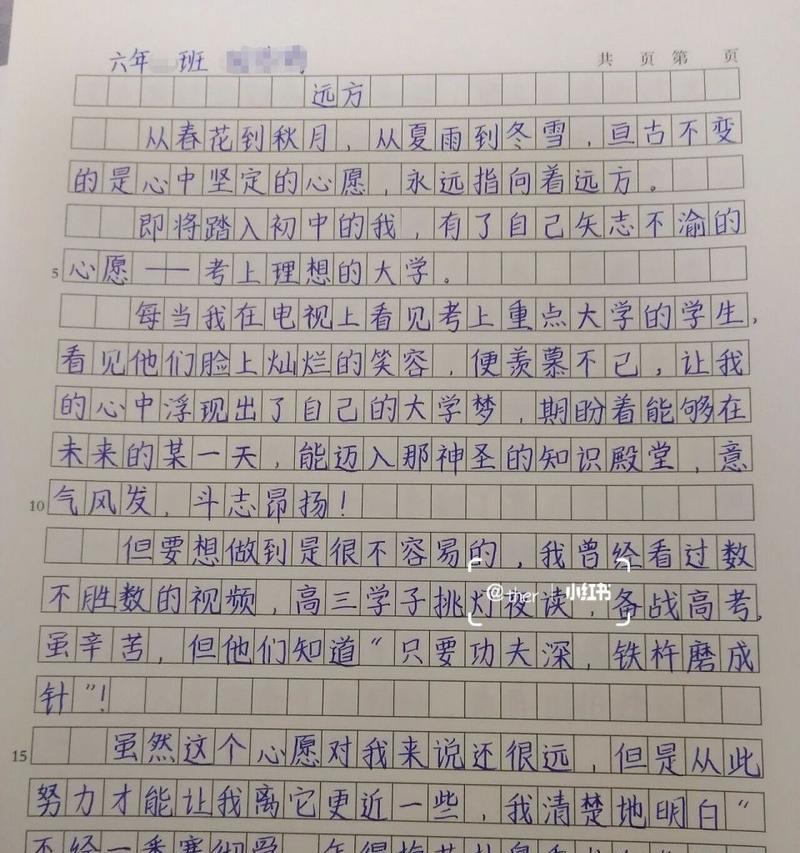 六年 班
共 页 第 页
远方
从春花到秋月，从夏雨到冬雪，亘古不变
的是心中坚定的心愿，永远指向着远方。
即将踏入初中的我，有了自己矢志不渝的
5 心愿——考上理想的大学。
每当我在电视上看见考上重点大学的学生，
看见他们脸上灿烂的笑容，便羡慕不已，让我
的心中浮现出了自己的大学梦，期盼着能够在
未来的某一天，能迈入那神圣的知识殿堂，意
10 气风发，斗志昂扬！
但要想做到是很不容易的，我曾经看过数
不胜数的视频，高三学子挑灯夜读，备战高考，
虽辛苦，但他们知道“只要功夫深，铁杵磨成
针”！
15 虽然这个心愿对我来说还很远，但是从此
努力才能让我离它更近一些，我清楚地明白“
不经一番寒彻
小红书